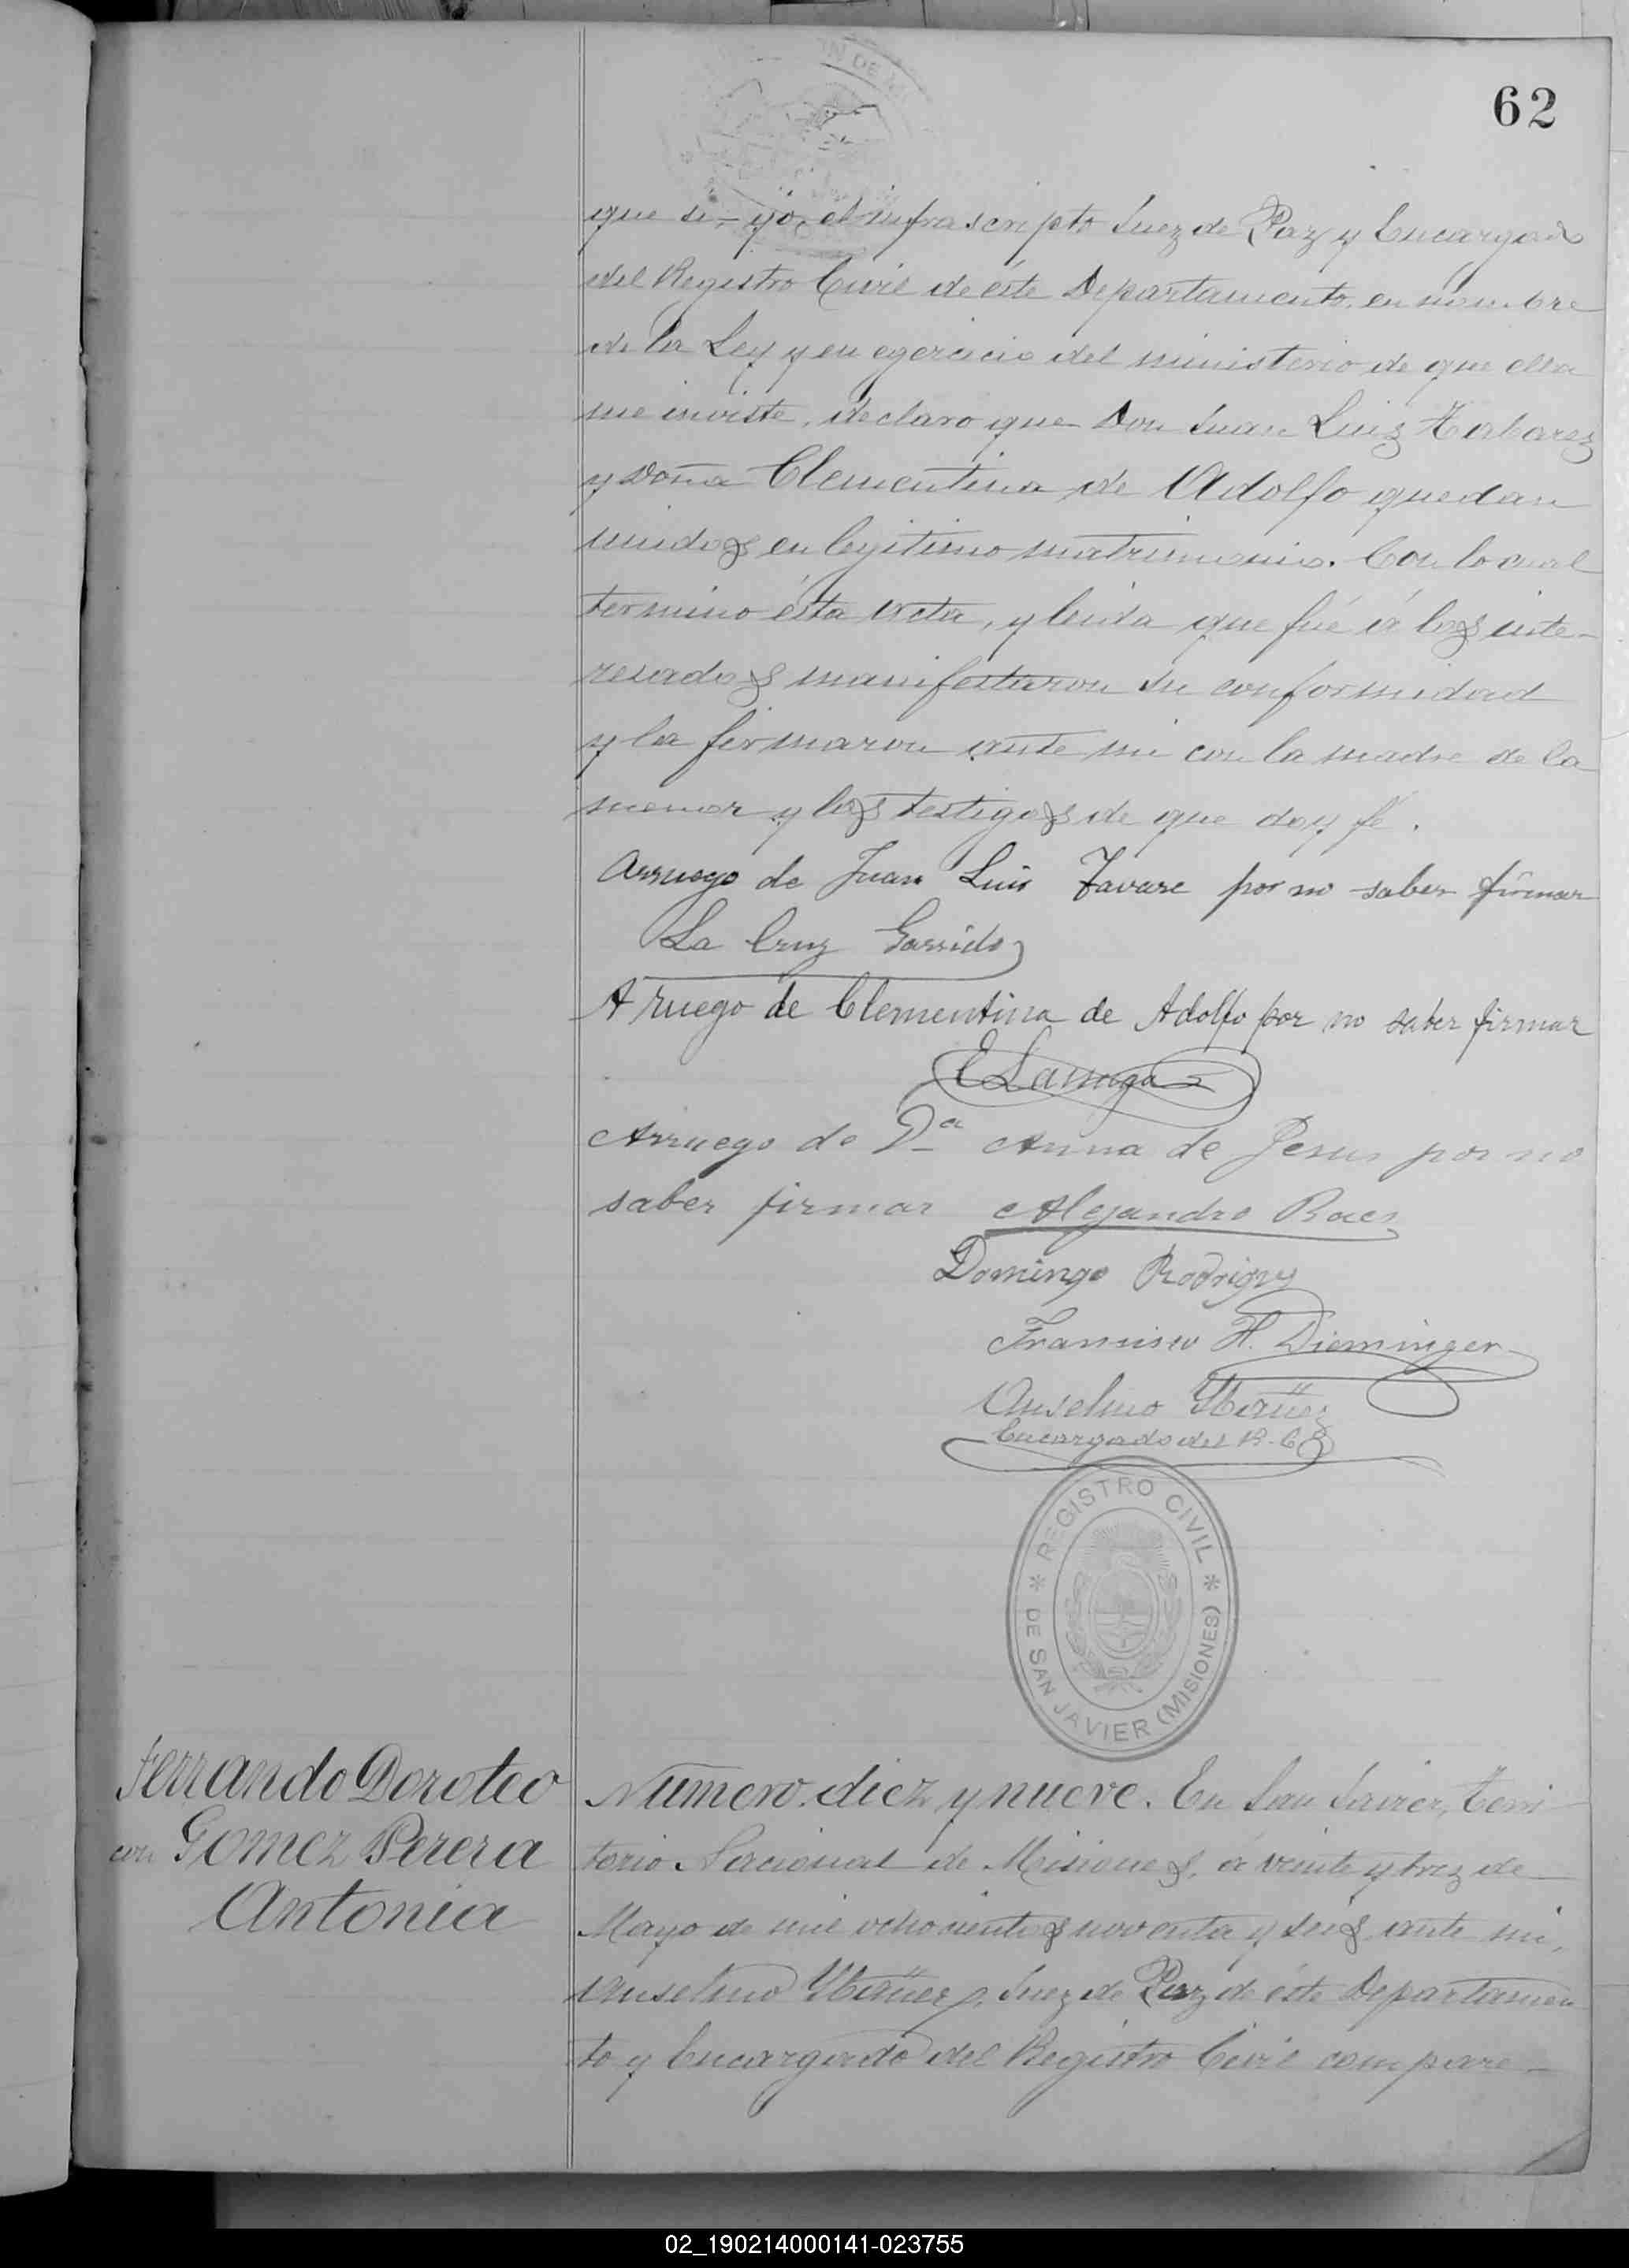 62
que si, yo, el infrascripto Juez de Paz y Encargado
del Registro Civil de éste Departamento, en nombre
de la Ley y en egercicio del ministerio de que ella
me inviste, declaro que Don Juan Luiz Tabarez
y Doña Clementina de Adolfo quedan
unidos en legitimo matrimonio. Con lo cual
termino ésta acta, y leida que fué á los inte-
resados manifestaron su conformidad
y la firmaron ante mi con la madre de la
menor y los testigos de que doy fé.
Arruego de Juan Luis Tavare por no saber firmar
La Cruz Garrido
A ruego de Clementina de Adolfo por no saber firmar
Arruego de Da Anna de Jesus por no
saber firmar Alejandro Baes
Domingo Rodrigz
Francisco H. Dieminger
Anselmo
Encargado del R. C.
REGISTRO CIVIL
DE SAN JAVIER (MISIONES)
Ferrando Doroteo
con Gomez Perera
Antonia
Número diez y nueve. En San Javier, Terri
torio Nacional de Misiones, á veinte y trez de
Mayo de mil ochocientos noventa y seis, ante mi,
Anselmo Juez de Paz de éste Departamen
to y Encargado del Registro Civil compare-
02_190214000141-023755